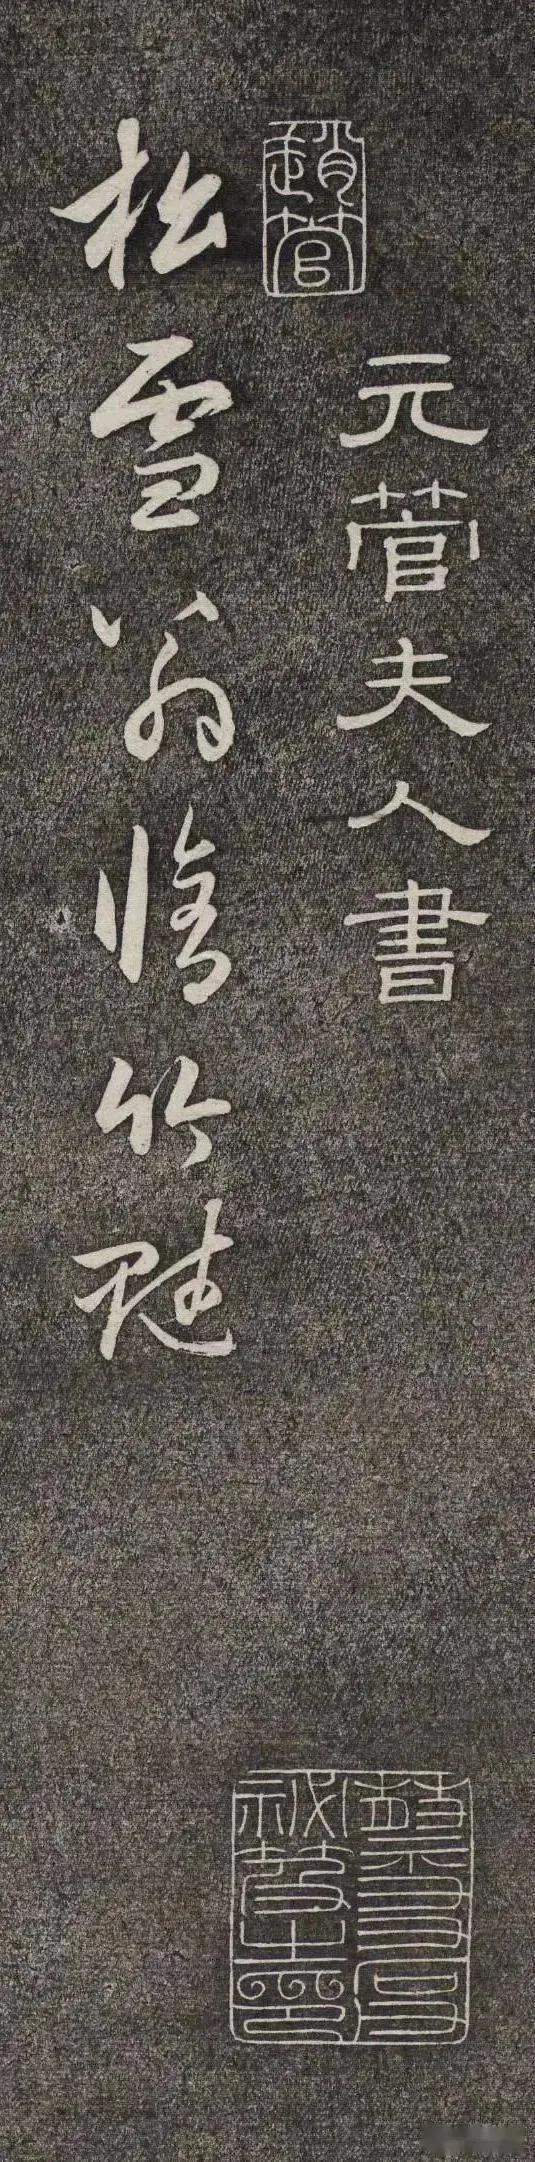 元管夫人書
趙管
松雪翁脩竹賦